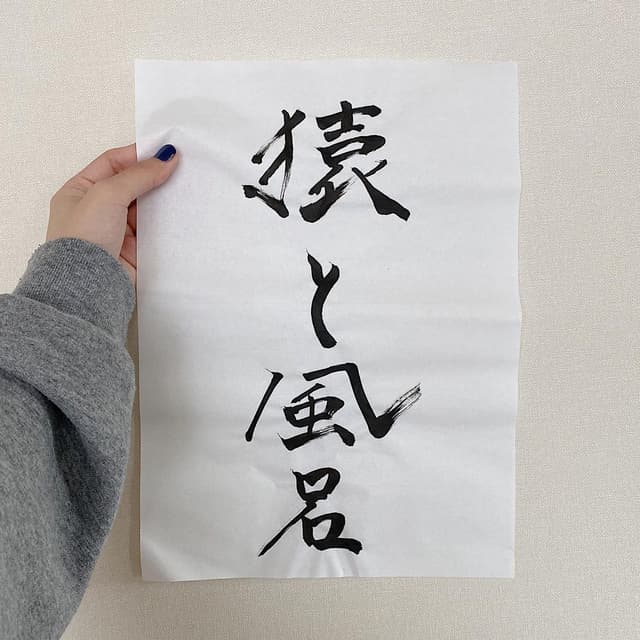 猿と風呂